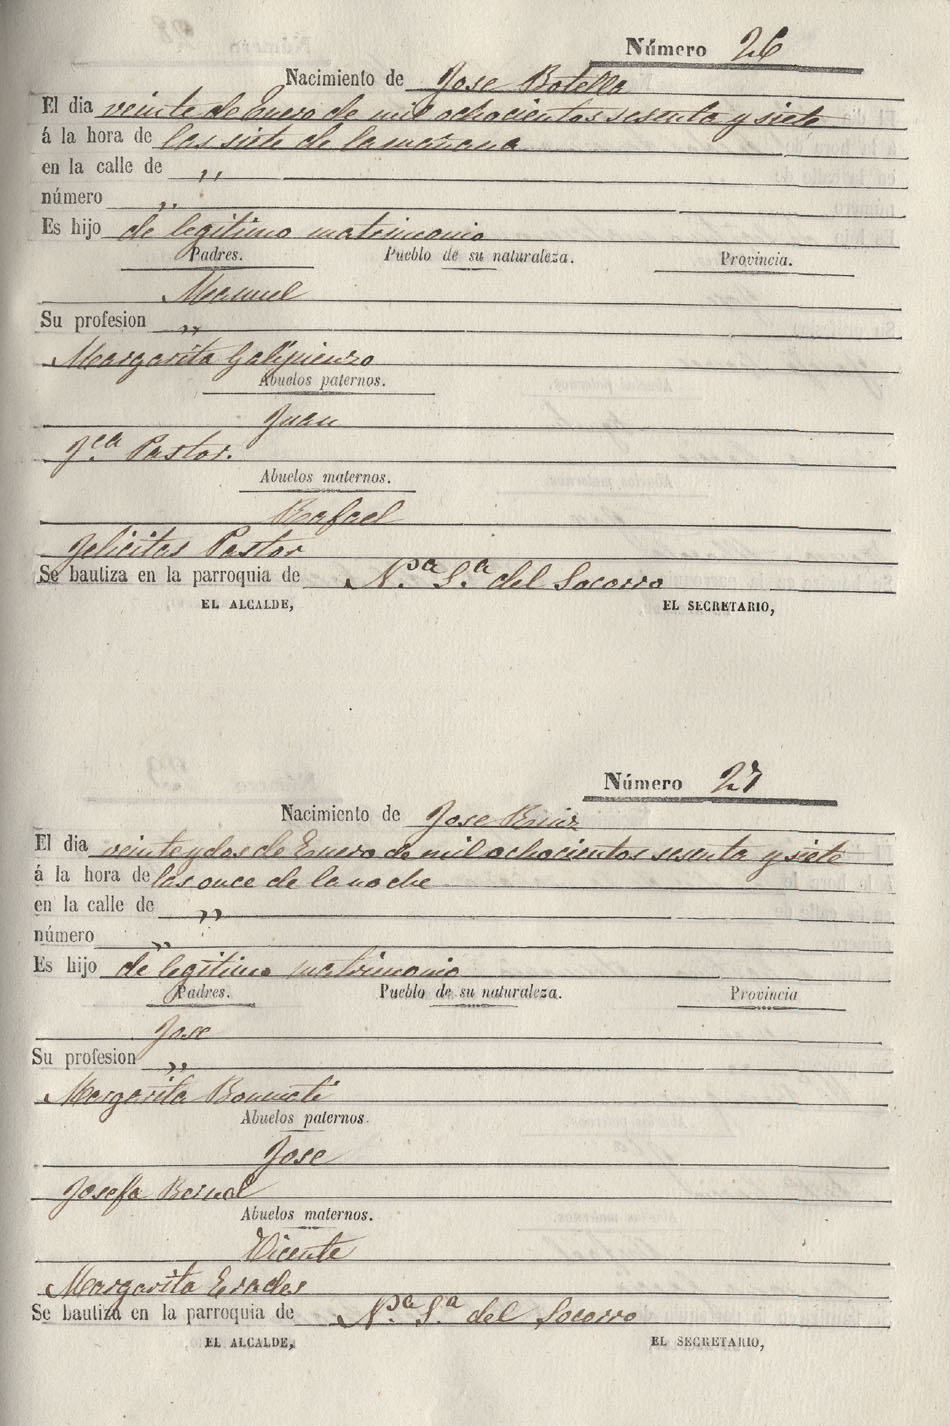 Número 26
Nacimiento de Jose Botella
El dia veinte de Enero de mil ochocientos sesenta y siete
á la hora de las siete de la mañana
en la calle de ,,
número ,,
Es hijo de legitimo matrimonio
Padres. Pueblo de su naturaleza. Provincia.
Manuel
Su profesion ,,
Margarita Galipienzo
Abuelos paternos.
Juan
J.ca Pastor.
Abuelos maternos.
Rafael
Felicitas Pastor
Se bautiza en la parroquia de N.ª S.ª del Socorro
EL ALCALDE, EL SECRETARIO,
Número 27
Nacimiento de Jose Ruiz
El dia veinte y dos de Enero de mil ochocientos sesenta y siete
á la hora de las once de la noche
en la calle de ,,
número ,,
Es hijo de legitimo matrimonio
Padres. Pueblo de su naturaleza. Provincia
Jose
Su profesion ,,
Margarita Bonmati
Abuelos paternos.
Jose
Josefa Bernal
Abuelos maternos.
Vicente
Margarita Erades
Se bautiza en la parroquia de N.ª S.ª del Socorro
EL ALCALDE, EL SECRETARIO,